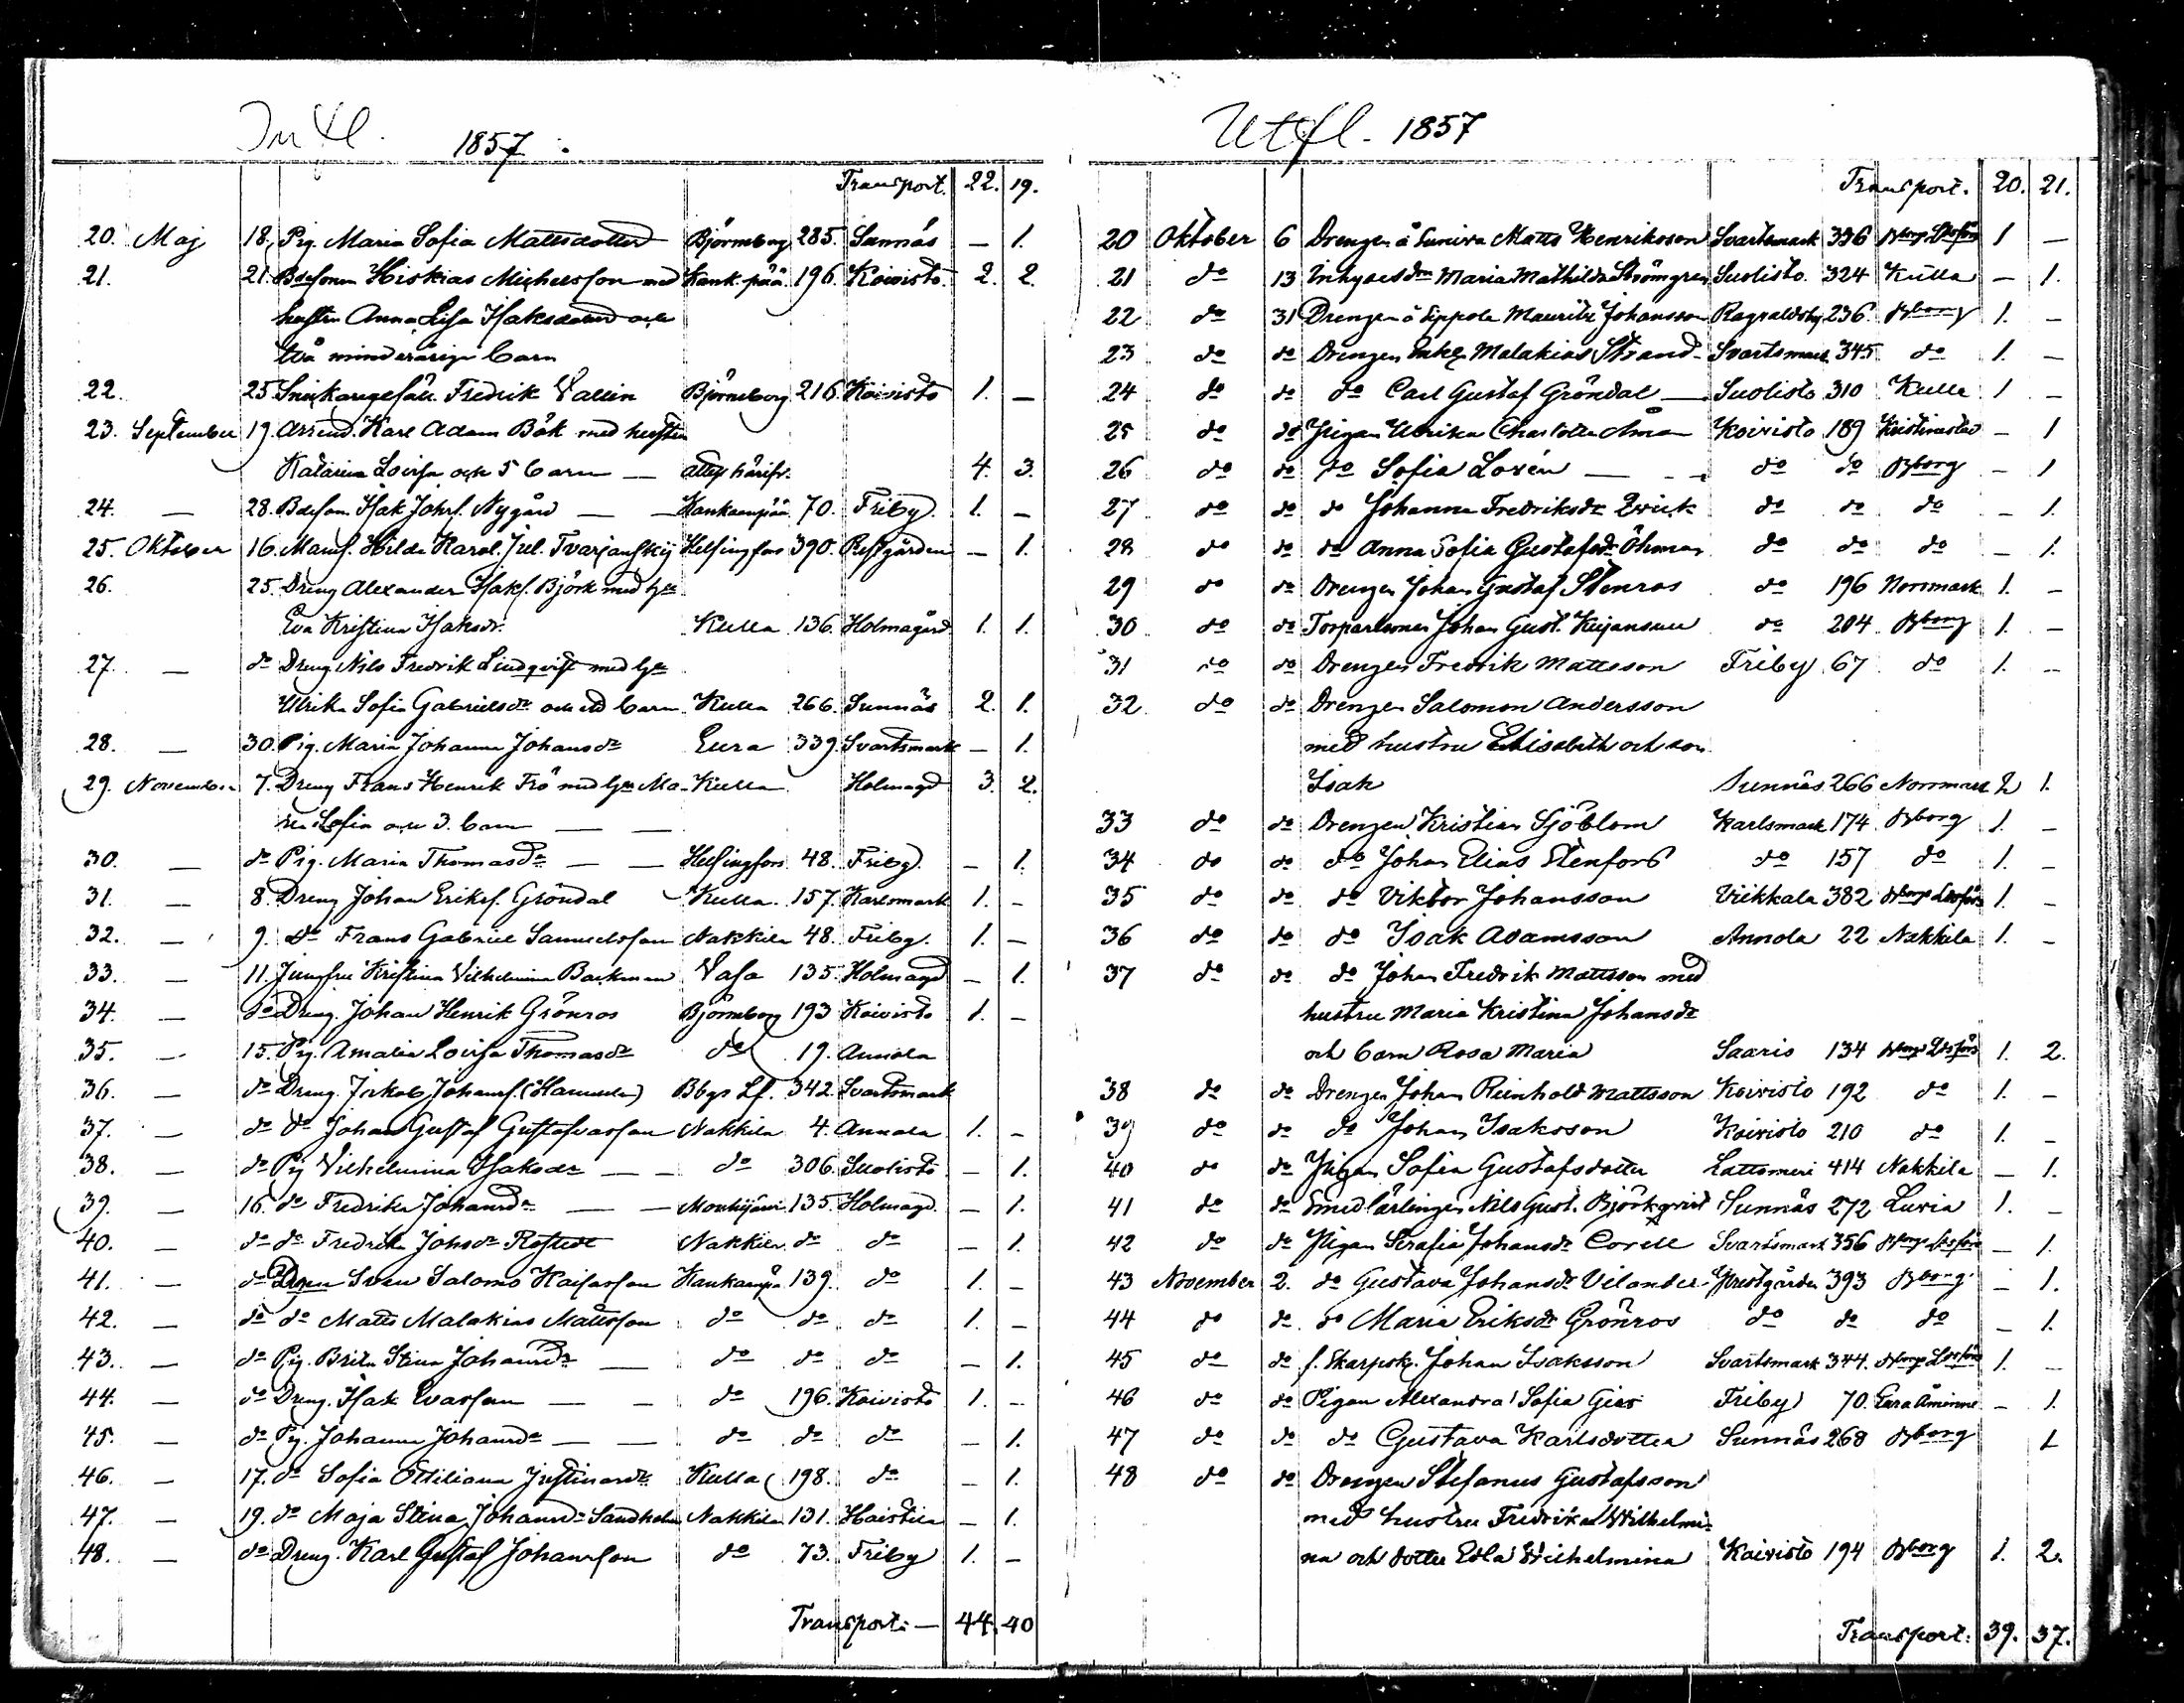 Infl. 1857
Transport. 22. 19.
20. Maj 18. Pig. Maria Sofia Mattsdotter Björneborg 285. Sunnäs — 1.
21. 21. Bdesonen Hiskias Michelsson med Kank.pää 196. Koivisto 2. 2.
hustru Anna Lisa Isaksdotter och
två minderåriga barn
22. 25. Snickaregesäll Fredrik Vallin Björneborg 216. Koivisto 1. —
23. September 19. Arrend. Karl Adam Bök med hustru
Katarina Lovisa och 5 barn — härifr. 4. 3.
24. — 28. Bdeson Isak Johs. Nygård — — Kankaanpää 70. Friby. 1. —
25. Oktober 16. Mamsl. Hilda Karol. Jul. Tvarjanskij Helsingfors 390. Prestgården — 1.
26. 25. Dreng Alexander Isaks. Björk med hu
Eva Kristina Isaksdr. Kulla 136. Holmagård 1. 1.
27. — do Dreng Nils Fredrik Lindqvist med hu
Ulrika Sofia Gabrielsdr och ett barn. Kulla 266. Sunnäs 2. 1.
28. — 30. Pig. Maria Johanna Johansdr Eura 339. Svartsmark — 1.
29. November 7. Dreng Frans Henrik Frö med hu Ma- Kulla Holmagd 3. 2.
ria Sofia och 3. barn — —
30. — do Pig. Maria Thomasdr — — Helsingfors 48. Friby. — 1.
31. — 8. Dreng Johan Eriks. Gröndal Kulla. 157. Karlsmark 1. -
32. — 9. do Frans Gabriel Samuelsson Nakkila 48. Friby. 1. —
33. — 11. Jungfru Kristina Vilhelmina Backman Vasa 135. Holmagd — 1.
34. — do Dreng. Johan Henrik Grönroos Björneborg 193 Koivisto 1. —
35. — 15. Pig. Amalia Lovisa Thomasdr do 19. Annola
36. — do Dreng. Jakob Johans. Bbgs Lf. 342. Svartsmark
37. — do do Johan Gustaf Gustafvasson Nakkila 4. Annola 1. -
38. — do Pig Vilhelmina Isaksdr — — do 306. Suolisto — 1.
39. — 16. do Fredrika Johansdr — — Mouhijärvi 135. Holmagd. — 1.
40. — do do Fredrika Johsdr Rostedt Nakkila do do — 1.
41. — do Dreng Sven Salomo Kaisasson Kankaanpä 139. do 1. —
42. — do do Matts Malakias Mattsson do do do 1. —
43. — do Pig. Brita Stina Johansdr — do do do — 1.
44. — do Dreng. Isak Evasson — — do 196. Koivisto 1. —
45. — do Pig. Johanna Johansdr — — do do do — 1.
46. — 17. do Sofia Ottiliana Justinasdr Kulla 198. do — 1.
47. — 19. do Maja Stina Johansdr Sandholm Nakkila 131. Haistila — 1.
48. — do Dreng. Karl Gustaf Johansson do 73. Friby 1. —
Transport: — 44. 40
Utfl. 1857
Transport. 20. 21.
20 Oktober 6 Drengen å Matts Henriksson Svartsmark 336 Bborgs Ldsförs 1 —
21 do 13 Inhysesdm Maria Mathilda Strömgren Suolisto. 324 Kulla — 1.
22 do 31 Drengen å Sippola Maurits Johansson Ragvaldsby 236. Bborg 1. —
23 do do Drengen Enkl. Malakias Strand Svartsmark 345 do 1. —
24 do do do Carl Gustaf Gröndal — Suolisto 310 Kulla 1 —
25 do do Pigan Ulrika Charlotta Åman Koivisto 189 Kristinestad — 1
26 do do do Sofia Lovén — — do do Bborg — 1
27 do do do Johanna Fredriksdr Qvick do do do — 1.
28 do do do Anna Sofia Gustafsdr Öhman do do do — 1.
29 do do Drengen Johan Gustaf Stenros do 196 Norrmark 1. —
30 do do Torparsonen Johan Gust. Keijansuu do 204 Bborg 1. —
31 do do Drengen Fredrik Mattsson Friby 67 do 1. —
32 do do Drengen Salomon Andersson
med hustru Elisabeth och son
Isak Sunnäs 266 Norrmark 2 1.
33 do do Drengen Kristian Sjöblom Karlsmark 174 Bborg 1. —
34 do do do Johan Elias Stenfors do 157 do 1. —
35 do do do Viktor Johansson Viikkala 382 Bborgs Ldsförs 1. —
36 do do do Isak Adamsson Annola 22 Nakkila 1. —
37 do do do Johan Fredrik Mattsson med
hustru Maria Kristina Johansdr
och barn Rosa Maria Saaris 134 Bborgs Ldsförs 1. 2.
38 do do Drengen Johan Reinhold Mattsson Koivisto 192 do 1. —
39 do do do Johan Isaksson Koivisto 210 do 1. —
40 do do Pigan Sofia Gustafsdotter Lattomeri 414 Nakkila — 1.
41 do do Smedlärlingen Nils Gust. Björkqvist Sunnäs 272 Luvia 1. —
42 do do Pigan Serafia Johansdr Corell Svartsmark 356 Bborgs Ldsförs — 1.
43 November 2. do Gustava Johansdr Vilander Prestgården 393 Bborg — 1.
44 do do do Maria Eriksdr Grönros do do do — 1.
45 do do f. Skarpsk. Johan Isaksson Svartsmark 344. Bborgs Ldsförs 1. —
46 do do Pigan Alexandra Sofia Friby 70. — 1.
47 do do do Gustava Karlsdotter Sunnäs 268 Bborg 1
48 do do Drengen Stefanus Gustafsson
med hustru Fredrika Wilhelmi-
na och dotter Edla Wilhelmina Koivisto 194 Bborg 1. 2.
Transport: 39. 37.